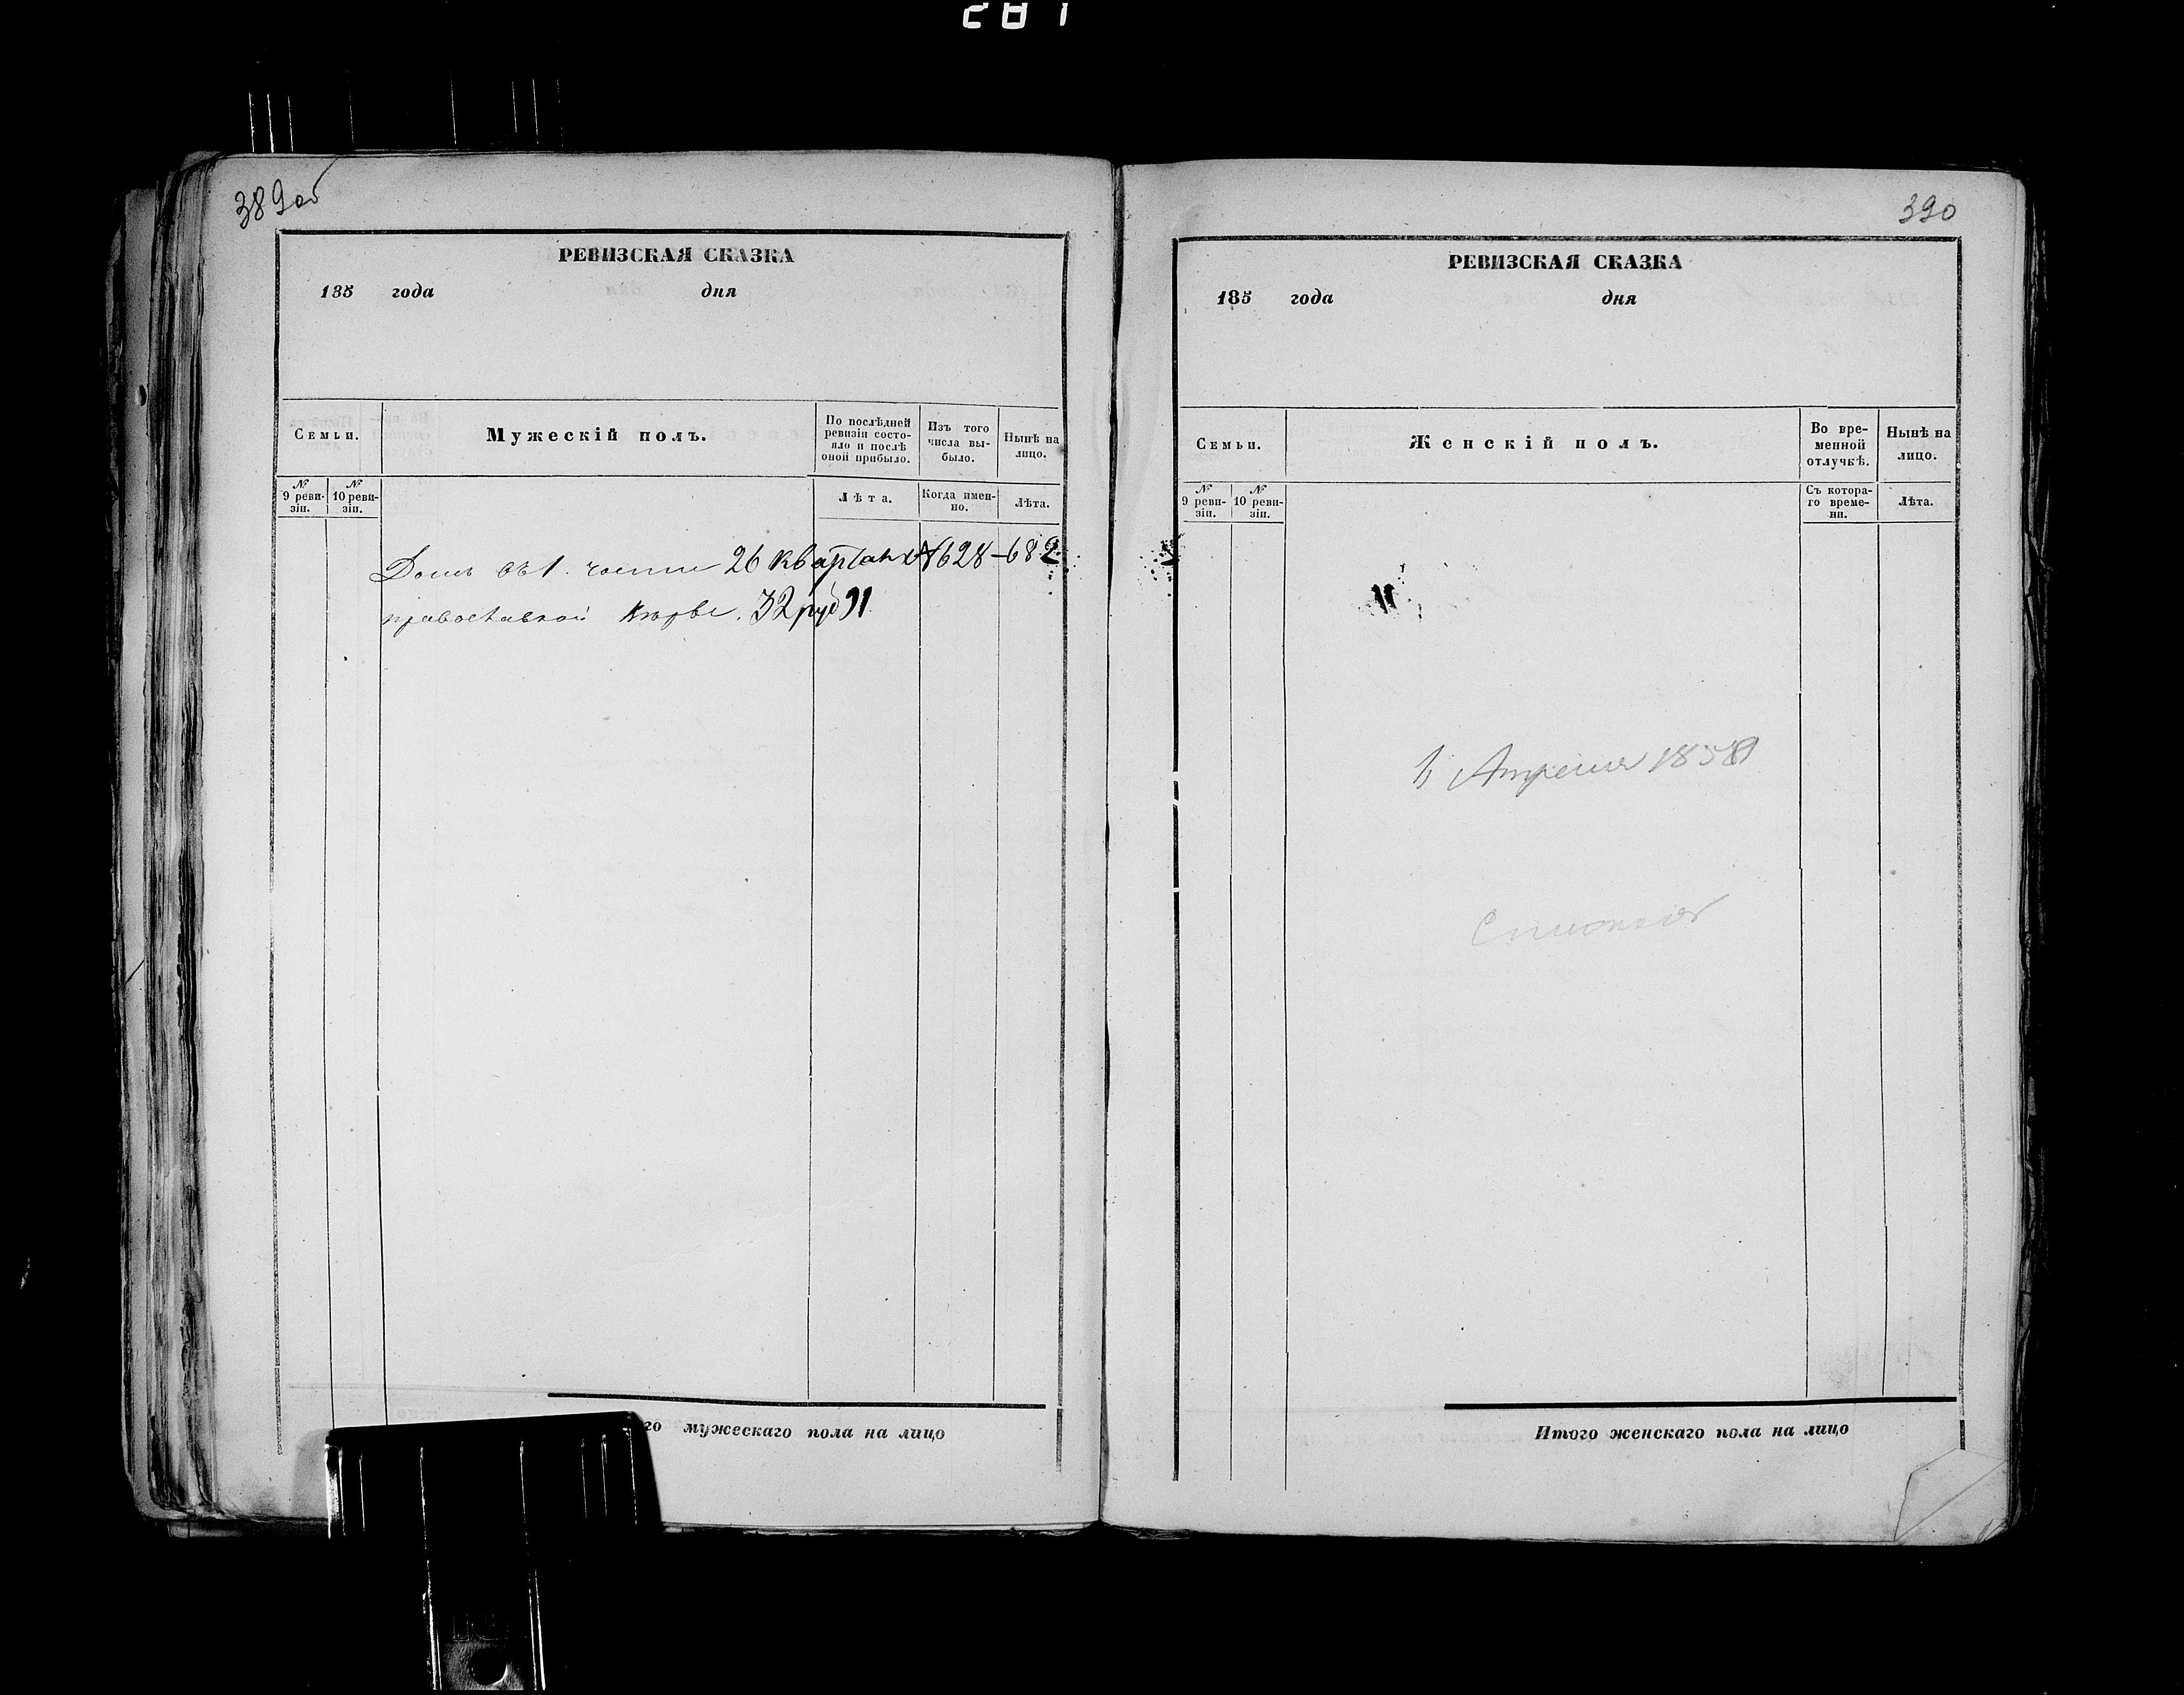 281
389об
РЕВИЗСКАЯ СКАЗКА
185 года дня
Семьи.
Мужескій полъ.
По послѣдней ревизіи состо-
яло и послѣ
оной прибыло.
Изъ того
числа вы-
было.
Нынѣ на
лицо.
№
9 реви-
зіи.
№
10 реви-
зіи.
Лѣта.
Когда имен-
но.
Лѣта.
Домъ въ 1. части 26 квартала №628-682
православной 32 руб 91
го мужескаго пола на лицо
390
РЕВИЗСКАЯ СКАЗКА
185 года дня
Семьи.
Женскій полъ.
Во вре-
менной
отлучкѣ.
Нынѣ на
лицо.
№
9 реви-
зіи.
№
10 реви-
зіи.
Съ котора-
го време-
ни.
Лѣта.
1 Апреля 1858
Итого женскаго пола на лицо